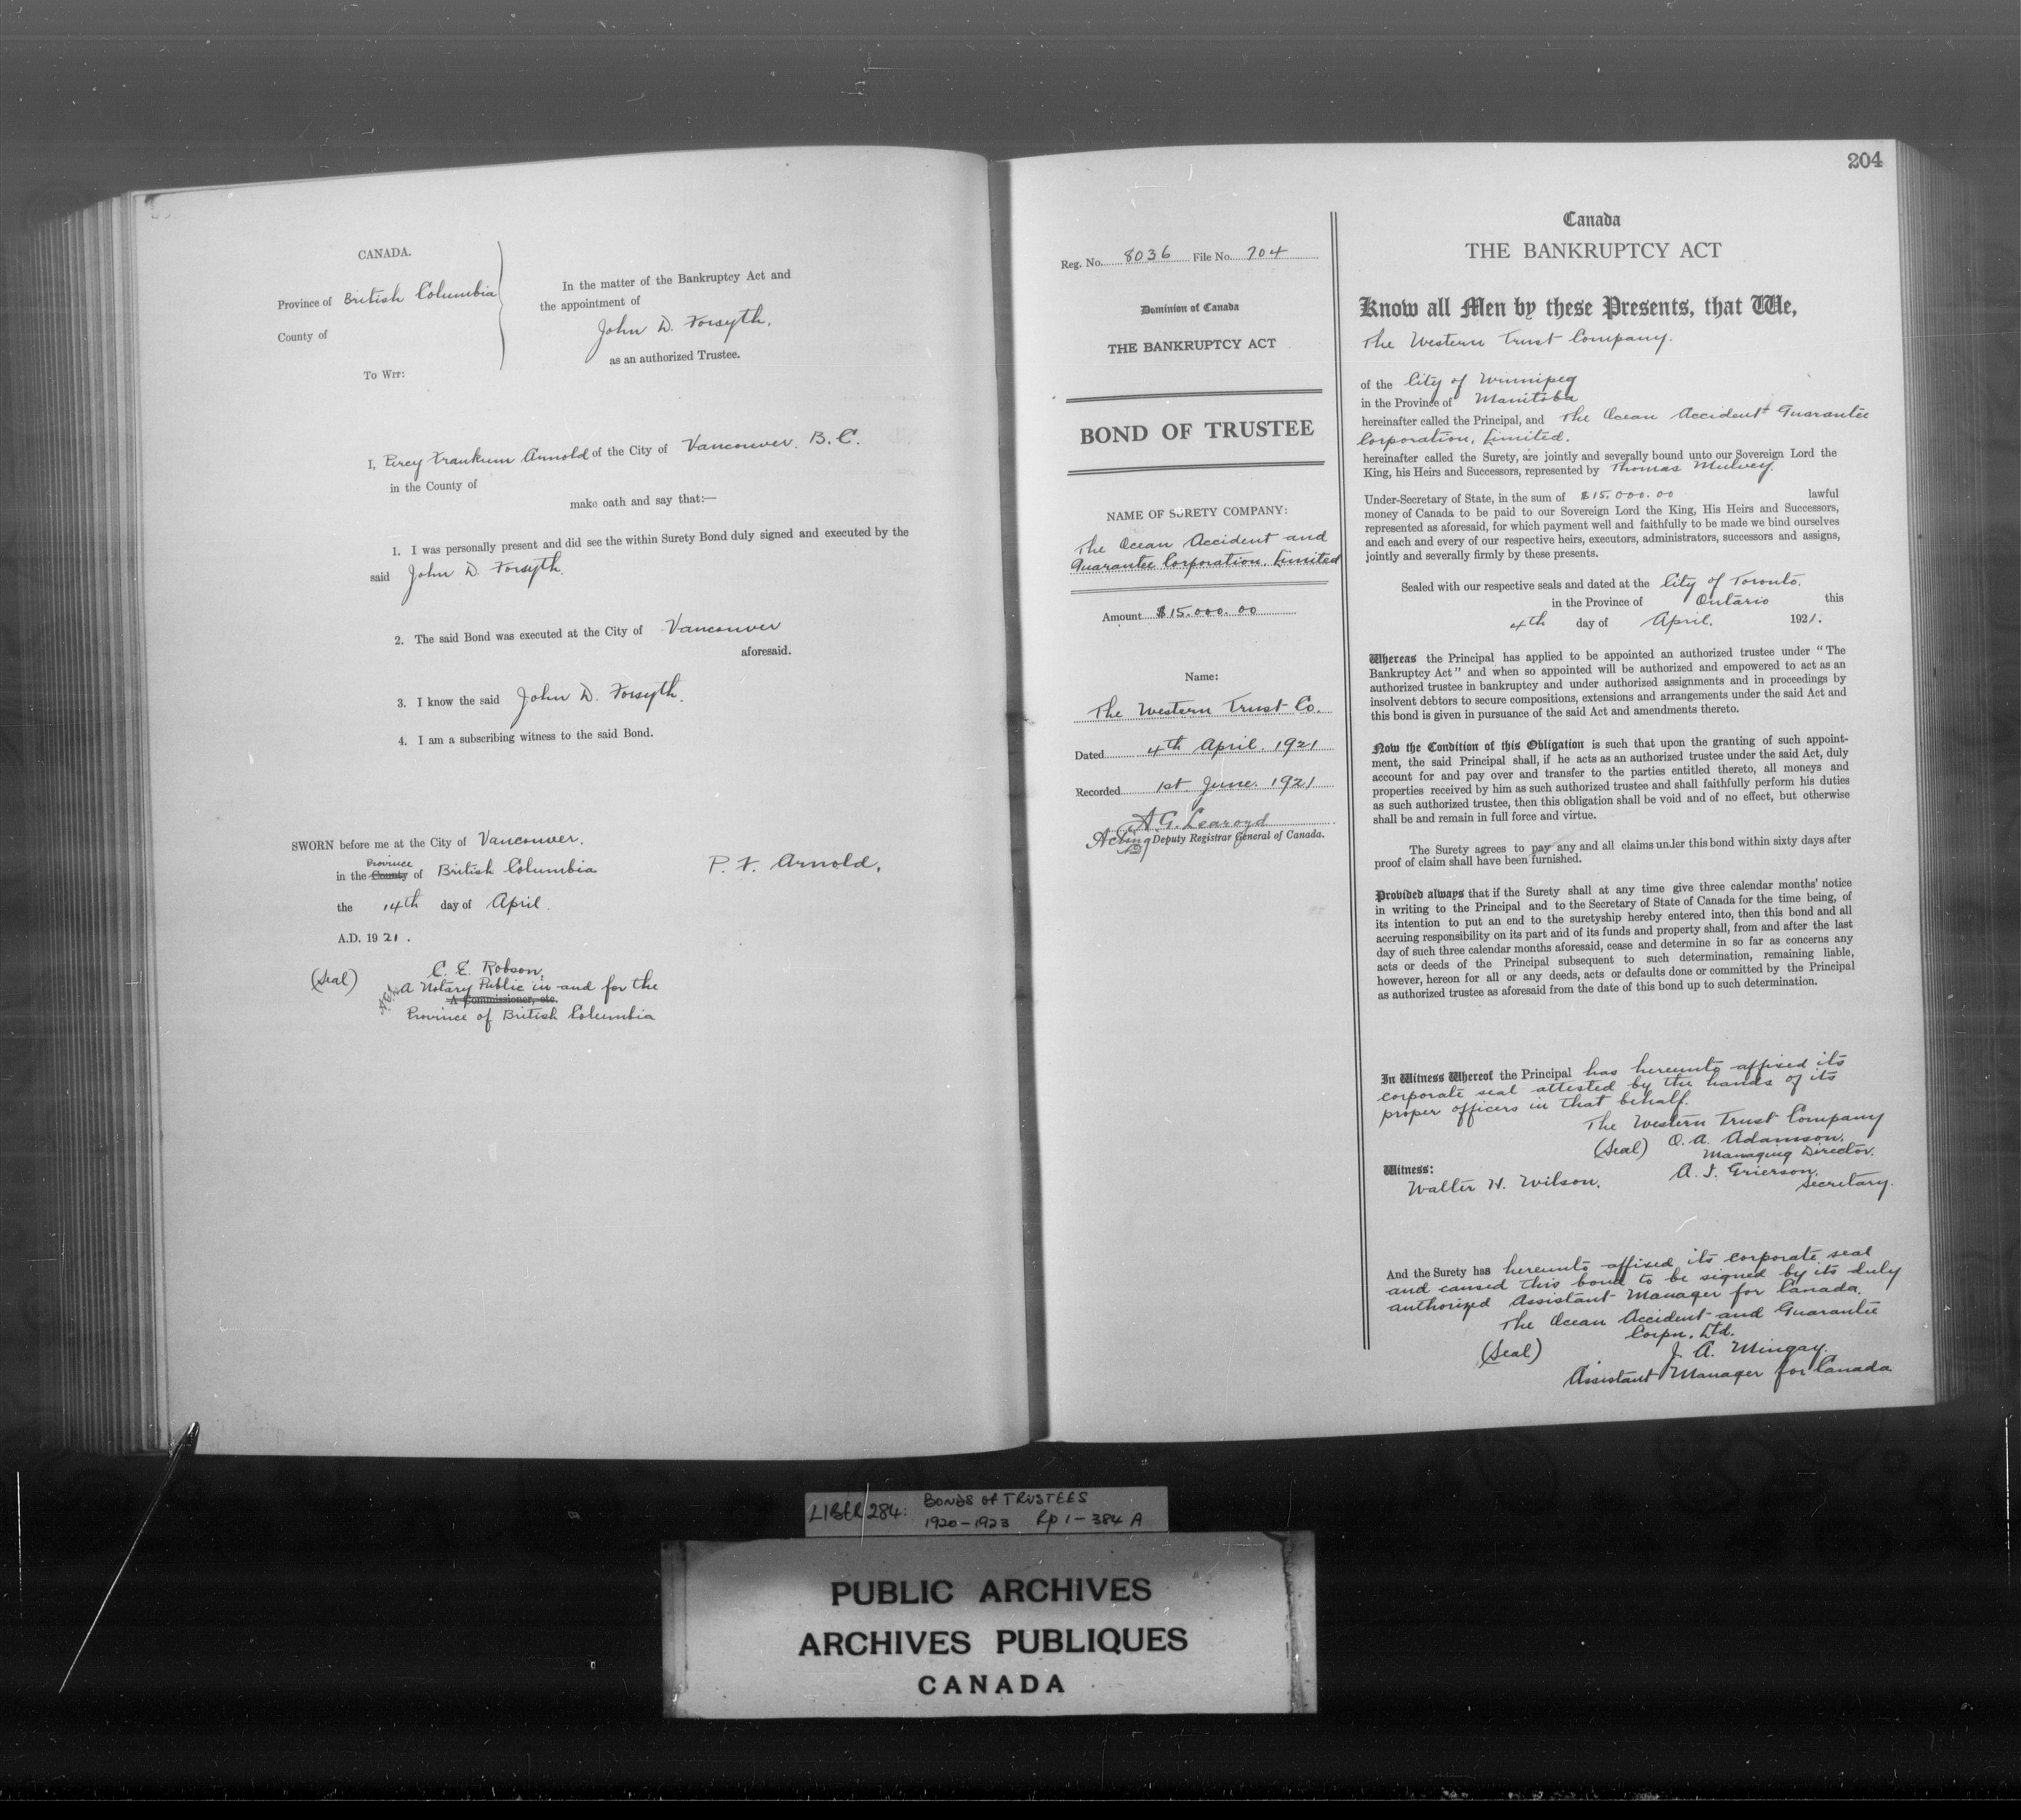 CANADA.
Province of British Columbia
County of
To Wit:
In the matter of the Bankruptcy Act and
the appointment of
John D. Forsyth.
as an authorized Trustee.
I, Percy Frankum Arnold of the City of Vancouver. B.C.
in the County of
make oath and say that:—
1. I was personally present and did see the within Surety Bond duly signed and executed by the
said John D. Forsyth.
2. The said Bond was executed at the City of Vancouver
aforesaid.
3. I know the said John D. Forsyth.
4. I am a subscribing witness to the said Bond.
SWORN before me at the City of Vancouver.
Province
in the County of British Columbia
the 14th day of April.
A.D. 1921.
P. F. Arnold.
(Seal) C. E. Robson,
A Notary Public in and for the
A Commissioner, etc.
Province of British Columbia
Reg. No. 8036 File No. 704
Dominion of Canada
THE BANKRUPTCY ACT
BOND OF TRUSTEE
NAME OF SURETY COMPANY:
The Ocean Accident and
Guarantee Corporation, Limited
Amount $15.000.00
Name:
The Western Trust Co.
Dated 4th April. 1921
Recorded 1st June. 1921
A G. Learoyd
Acting Deputy Registrar General of Canada.
204
Canada
THE BANKRUPTCY ACT
Know all Men by these Presents, that We,
The Western Trust Company.
of the City of Winnipeg
in the Province of Manitoba
hereinafter called the Principal, and The Ocean Accident & Guarantee
Corporation, Limited.
hereinafter called the Surety, are jointly and severally bound unto our Sovereign Lord the
King, his Heirs and Successors, represented by Thomas Mulvey.
Under-Secretary of State, in the sum of $15.000.00 lawful
money of Canada to be paid to our Sovereign Lord the King, His Heirs and Successors,
represented as aforesaid, for which payment well and faithfully to be made we bind ourselves
and each and every of our respective heirs, executors, administrators, successors and assigns,
jointly and severally firmly by these presents.
Sealed with our respective seals and dated at the City of Toronto.
in the Province of Ontario this
4th day of April. 1921.
Whereas the Principal has applied to be appointed an authorized trustee under "The
Bankruptcy Act" and when so appointed will be authorized and empowered to act as an
authorized trustee in bankruptcy and under authorized assignments and in proceedings by
insolvent debtors to secure compositions, extensions and arrangements under the said Act and
this bond is given in pursuance of the said Act and amendments thereto.
Now the Condition of this Obligation is such that upon the granting of such appoint-
ment, the said Principal shall, if he acts as an authorized trustee under the said Act, duly
account for and pay over and transfer to the parties entitled thereto, all moneys and
properties received by him as such authorized trustee and shall faithfully perform his duties
as such authorized trustee, then this obligation shall be void and of no effect, but otherwise
shall be and remain in full force and virtue.
The Surety agrees to pay any and all claims under this bond within sixty days after
proof of claim shall have been furnished.
Provided always that if the Surety shall at any time give three calendar months' notice
in writing to the Principal and to the Secretary of State of Canada for the time being, of
its intention to put an end to the suretyship hereby entered into, then this bond and all
accruing responsibility on its part and of its funds and property shall, from and after the last
day of such three calendar months aforesaid, cease and determine in so far as concerns any
acts or deeds of the Principal subsequent to such determination, remaining liable,
however, hereon for all or any deeds, acts or defaults done or committed by the Principal
as authorized trustee as aforesaid from the date of this bond up to such determination.
In Witness Whereof the Principal has hereunto affixed its
corporate seal attested by the hands of its
proper officers in that behalf.
The Western Trust Company
(Seal) O. A. Adamson.
Managing Director.
Witness:
Walter H. Wilson.
A. I. Grierson.
Secretary.
And the Surety has hereunto affixed its corporate seal
and caused this bond to be signed by its duly
authorized Assistant Manager for Canada.
The Ocean Accident and Guarantee
Corpn. Ltd.
(Seal) J. A. Mingay.
Assistant Manager for Canada
LIBER 284: BONDS OF TRUSTEES
1920-1923 Rp 1-384 A
PUBLIC ARCHIVES
ARCHIVES PUBLIQUES
CANADA